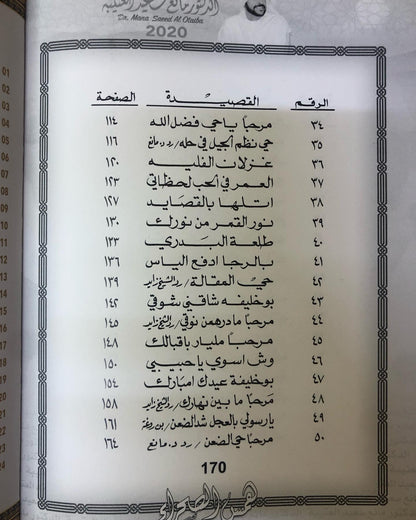 الدكتور مانع سعيد العتيبة
Dr. Mana Saeed Al Otaiba
2020
الرقم القصيدة الصفحة
٣٤ مرحبا ياحي فضل الله ١١٤
٣٥ حي نظم الجيل في حله / رد د. مانع ١١٦
٣٦ غزلان الفليه ١٢٠
٣٧ العمر في الحب لحظاتي ١٢٣
٣٨ اتلها بالقصايد ١٢٧
٣٩ نور القمر من نورك ١٣٠
٤٠ طلعة البدري ١٣٣
٤١ بالرجا ادفع الياس ١٣٦
٤٢ حي المقالة / رد الشيخ زايد ١٣٩
٤٣ بوخليفه شاقني شوقي ١٤٢
٤٤ مرحبا ما درهمن نوقي / رد الشيخ زايد ١٤٥
٤٥ مرحبا مليار باقبالك ١٤٨
٤٦ وش اسوي ياحبيبي ١٥٠
٤٧ بوخليفة عيدك امبارك ١٥٤
٤٨ مرحبا ما بين نهارك / رد الشيخ زايد ١٥٨
٤٩ يارسولي بالعجل شد الضعن / بن ١٦١
٥٠ مرحبا حي الضعن / رد د. مانع ١٦٤
170
همس الصحراء
01
02
03
04
05
06
07
08
09
10
11
12
13
14
15
16
17
18
19
20
21
22
23
24